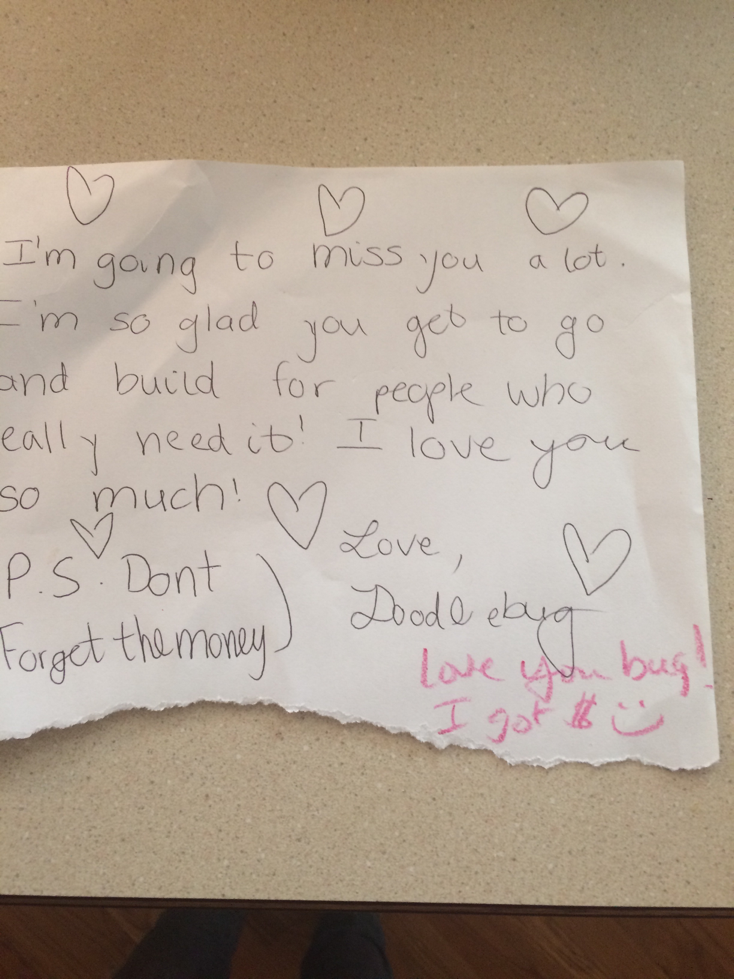 I'm going to miss you a lot.
I'm so glad you get to go
and build for people who
eally need it! I love you
so much!
Love,
Doodlebug
P.S. Dont
Forget the money)
Love you bug!
I got $ :)